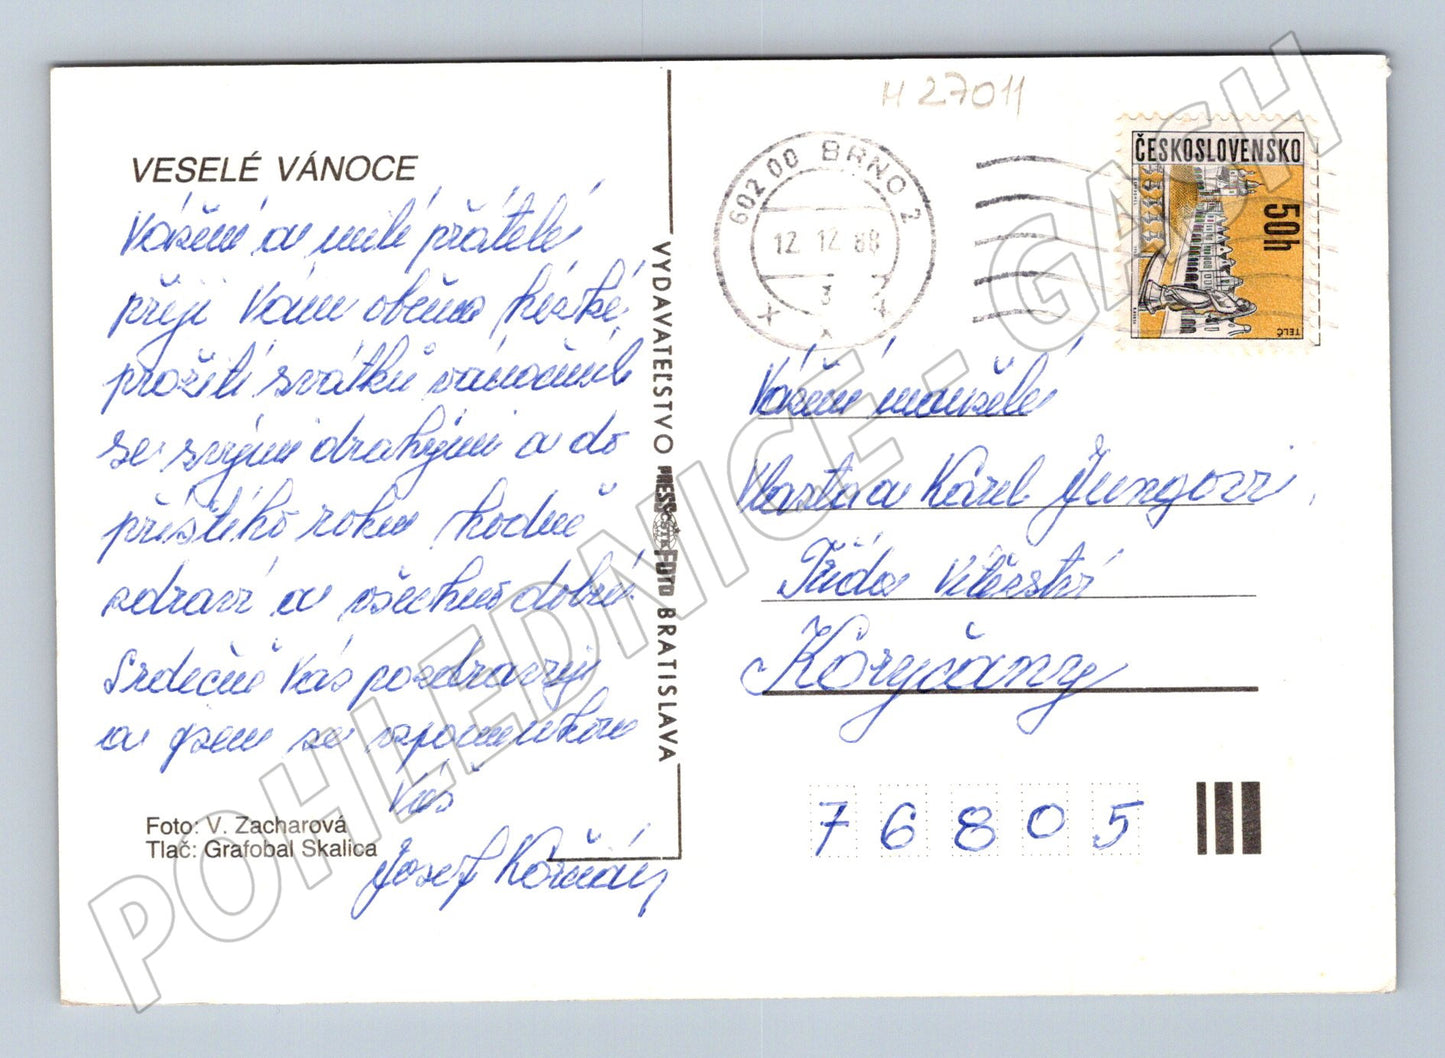 VESELÉ VÁNOCE
Vážení a milí přátelé
přeji Vám všem hezké
prožití svátků vánočních
se svými drahými a do
příštího roku hodně
zdraví a všechno dobré.
Srdečně Vás pozdravuji
a jsem se vzpomínkou
Váš
Josef
Foto: V. Zacharová
Tlač: Grafobal Skalica
VYDAVATEĽSTVO PRESSFOTO BRATISLAVA
H 27011
602 00 BRNO 2
12.12.88
3
x x x
ČESKOSLOVENSKO
50h
TELČ
Vážení manželé
Vlasta a Karel Jungovi
Třída Vítězství
Koryčany
76805
POHLEDNICE - GASH